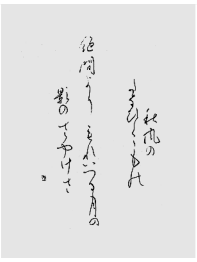 秋風の
たなびくくもの
絶間より もれいつる月の
影の さやけさ